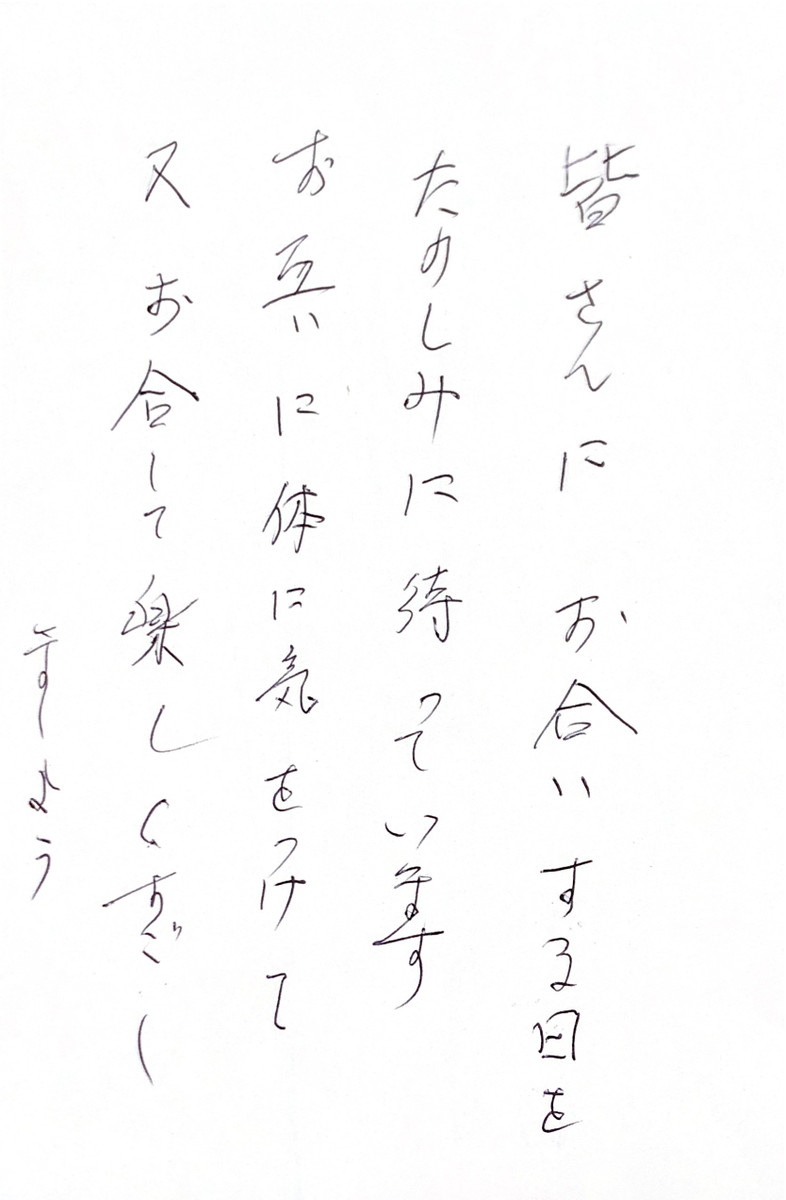 皆さんにお合いする日を
たのしみに待っています
お互いに体に気をつけて
又お合して楽しくすごし
ましょう